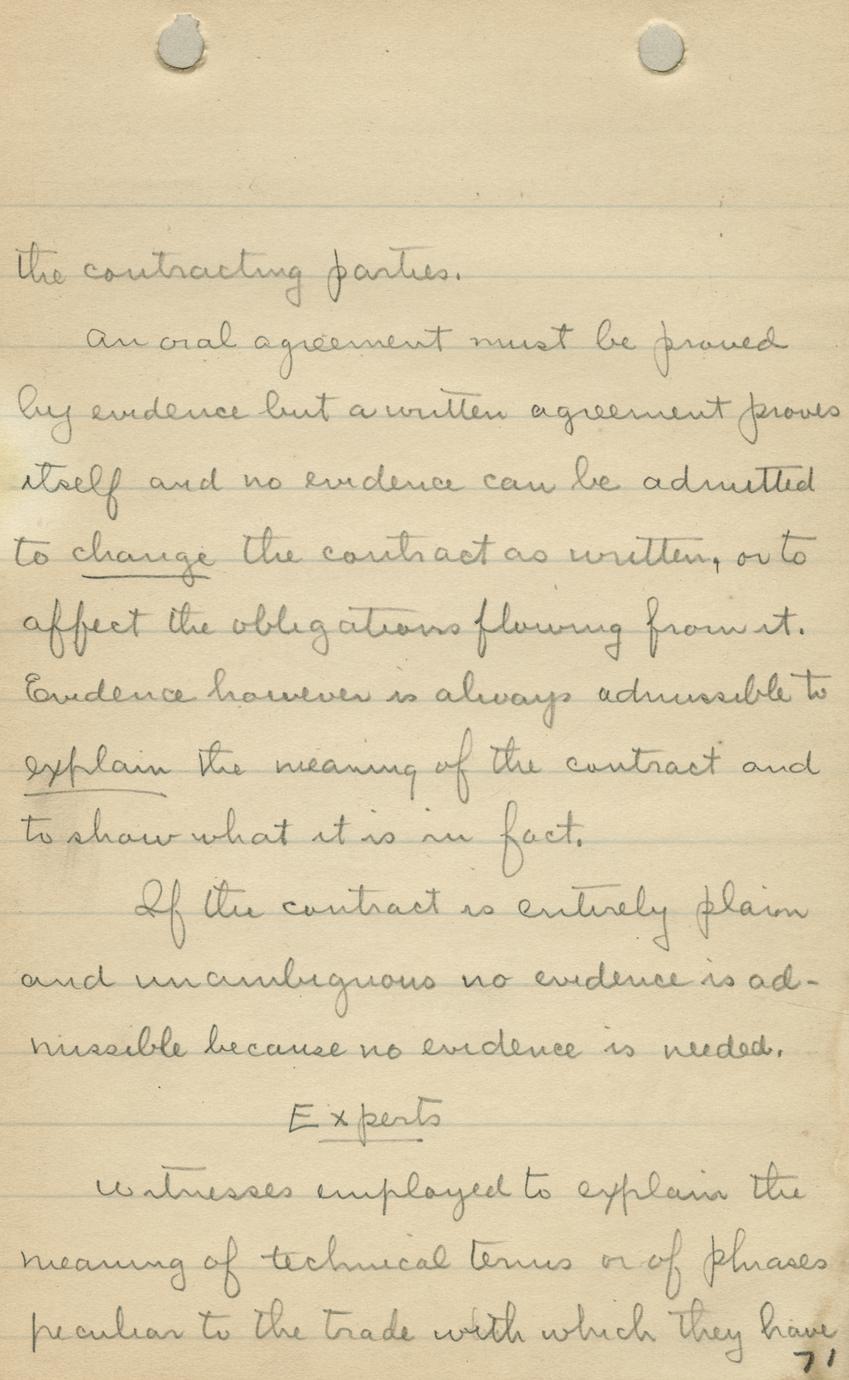 the contracting parties.
An oral agreement must be proved
by evidence but a written agreement proves
itself and no evidence can be admitted
to change the contract as written, or to
affect the obligations flowing from it.
Evidence however is always admissible to
explain the meaning of the contract and
to show what it is in fact.
If the contract is entirely plain
and unambiguous no evidence is ad-
missible because no evidence is needed.
Experts
Witnesses employed to explain the
meaning of technical terms or of phrases
peculiar to the trade with which they have
71